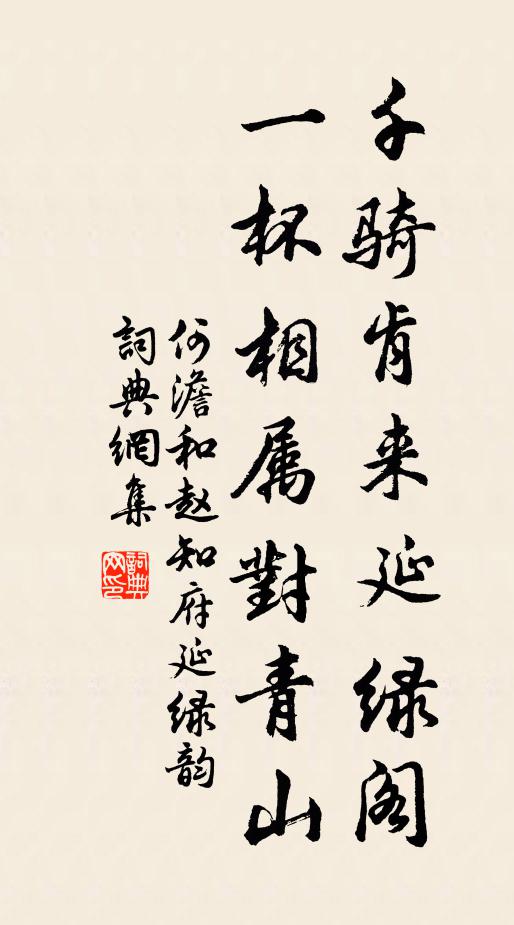 千骑肯来延绿阁
一杯相属對青山
何澹和赵知府延绿韵
詞典網集
詞典网印